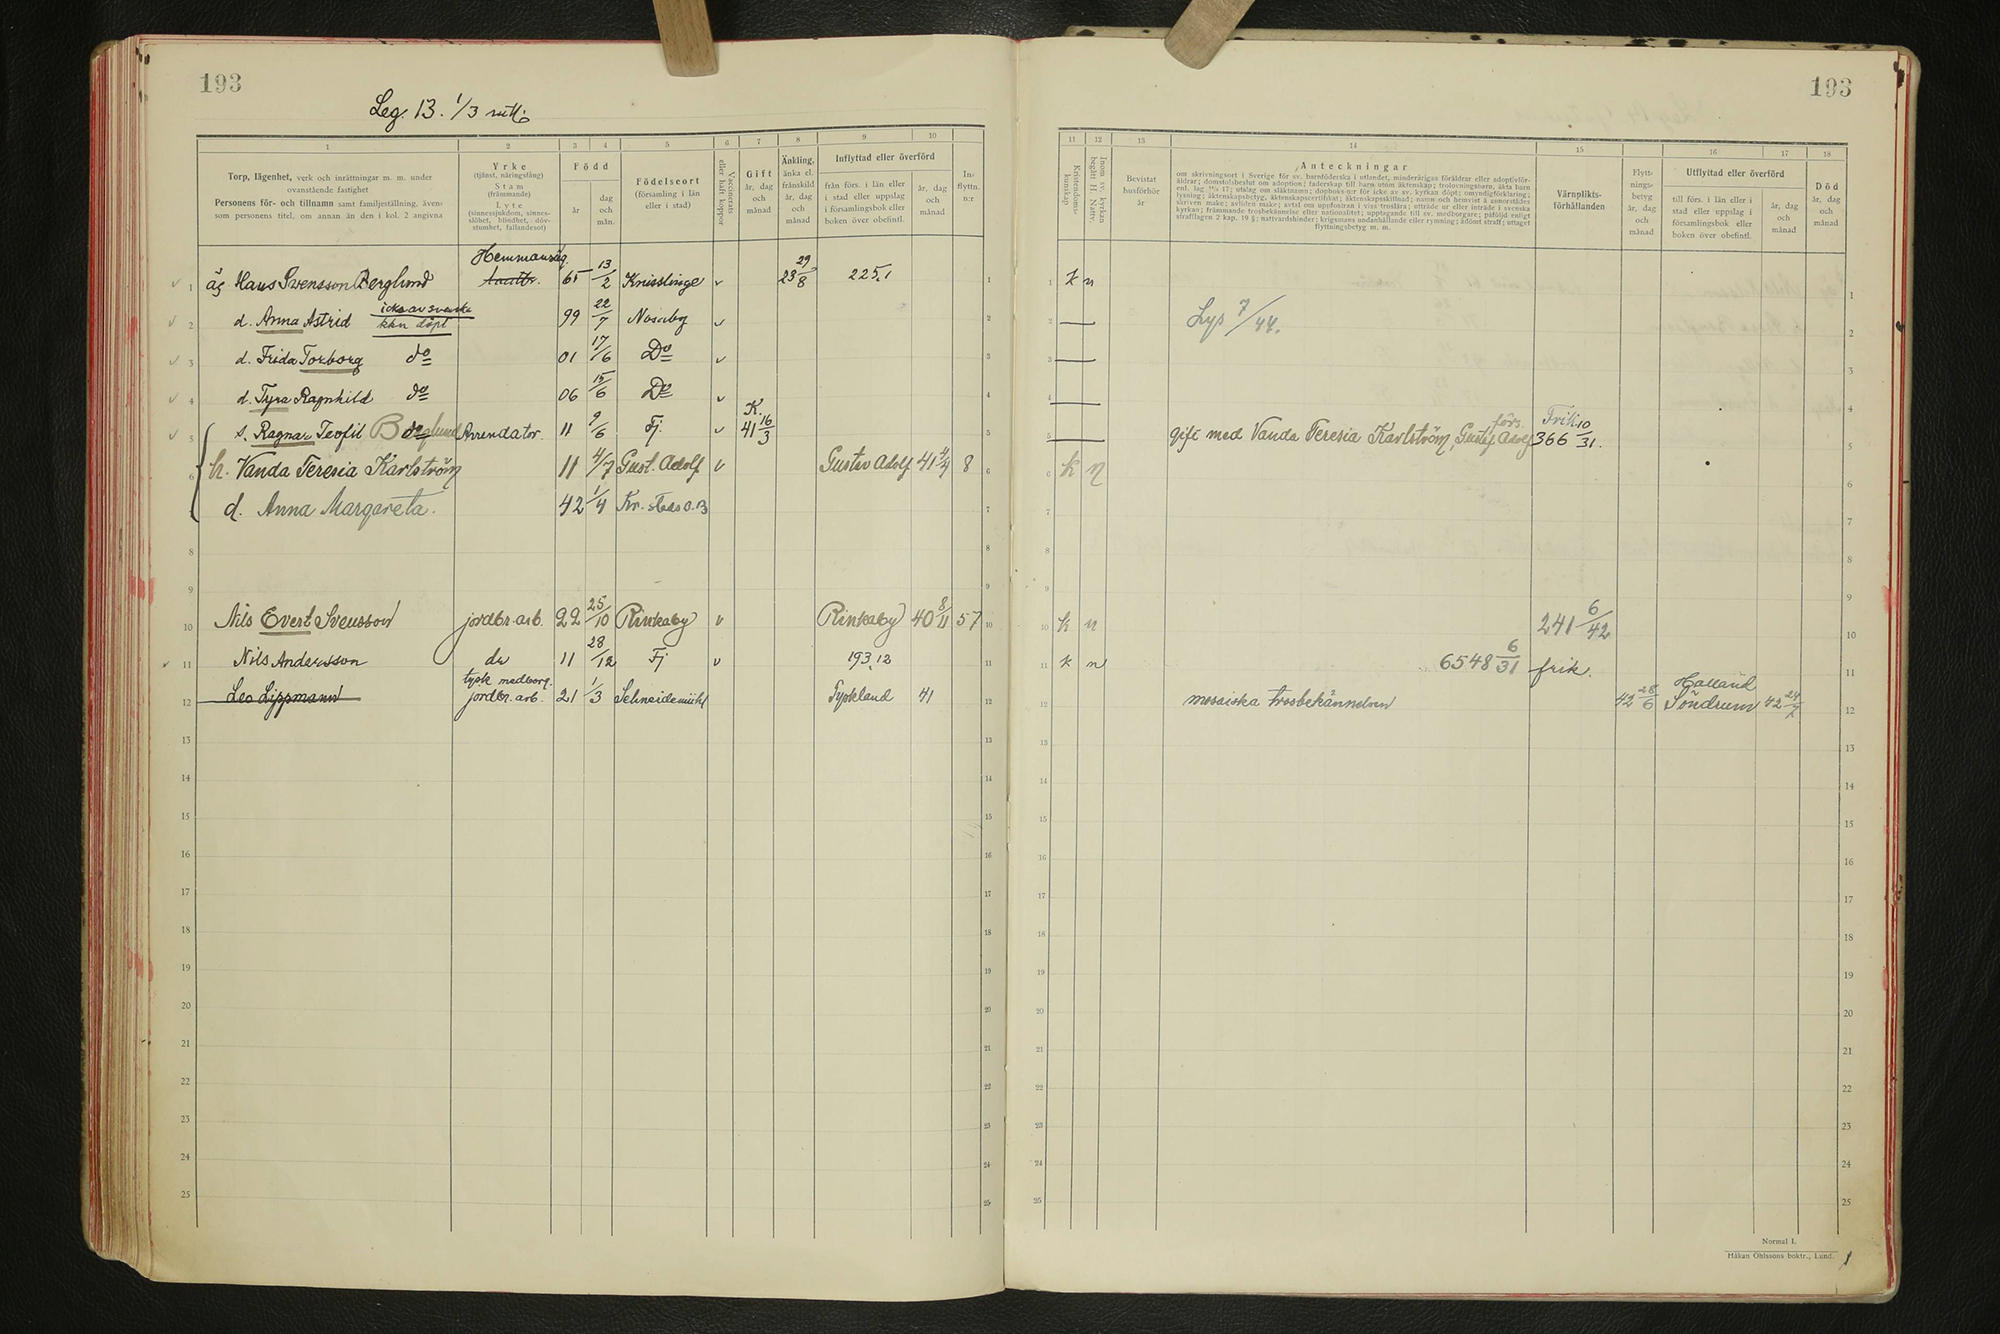 193
Leg. 13. 1/3 mtl.
1 2 3 4 5 6 7 8 9 10
Torp, lägenhet, verk och inrättningar m. m. under
ovanstående fastighet
Personens för- och tillnamn samt familjeställning, även-
som personens titel, om annan än den i kol. 2 angivna
Yrke
(tjänst, näringsfång)
Stam
(främmande)
Lyte
(sinnessjukdom, sinnes-
slöhet, blindhet, döv-
stumhet, fallandesot)
Född
år
dag
och
mån.
Födelseort
(församling i län
eller i stad)
Vaccinerats
eller haft koppor
Gift
år, dag
och
månad
Änkling,
änka el.
frånskild
år, dag
och
månad
Inflyttad eller överförd
från förs. i län eller
i stad eller uppslag
i församlingsbok eller
boken över obefintl.
år, dag
och
månad
In-
flyttn.
n:r
1 äg. Hans Svensson Berglund Hemmansäg. 65 13/2 Knisslinge v 23 29/8 225.1 1
2 d. Anna Astrid icke av svenska kkn döpt 99 22/7 Nosaby v 2
3 d. Frida Torborg do 01 17/6 Do v 3
4 d. Tyra Ragnhild do 06 15/6 Do v 4
5 s. Ragnar Teofil Berglund Arrendator 11 9/6 Fj. v K. 41 16/3 5
6 h. Vanda Teresia Karlström 11 4/7 Gust. Adolf v Gustav Adolf 41 4/4 8 6
d. Anna Margareta. 42 1/4 Kr. stads o. B 7
8 8
9 9
10 Nils Evert Svensson jordbr.arb. 22 25/10 Rinkaby v Rinkaby 40 8/11 57 10
11 Nils Andersson do 11 28/12 Fj v 193.12 11
12 Leo Lippmann tysk medborg. jordbr. arb. 21 1/3 Schneidemühl Tyskland 41 12
13 13
14 14
15 15
16 16
17 17
18 18
19 19
20 20
21 21
22 22
23 23
24 24
25 25
193
11 12 13 14 15 16 17 18
Kristendoms-
kunskap
Inom sv. kyrkan
begått H. Nattv.
Bevistat
husförhör
år
Anteckningar
om skrivningsort i Sverige för sv. barnföderska i utlandet, minderårigas föräldrar eller adoptivför-
äldrar; domstolsbeslut om adoption; faderskap till barn utom äktenskap; trolovningsbarn, äkta barn
flyttningsbetyg m. m.
Värnplikts-
förhållanden
Flytt-
nings-
betyg
år, dag
och
månad
Utflyttad eller överförd
till förs. i län eller i
stad eller uppslag i
församlingsbok eller
boken över obefintl.
år, dag
och
månad
Död
år, dag
och
månad
1 k n 1
2 Lys 7/44. 2
3 3
4 4
5 gift med Vanda Teresia Karlström, Gustaf Adolf förs. Frik. 366 10/31. 5
6 k n 6
7 7
8 8
9 9
10 k n 241 6/42 10
11 k n 6548 6/31 frik. 11
12 mosaiska trosbekännelsen 42 28/6 Halland Söndrum 42 24/7 12
13 13
14 14
15 15
16 16
17 17
18 18
19 19
20 20
21 21
22 22
23 23
24 24
25 25
Normal I.
Håkan Ohlssons boktr., Lund.